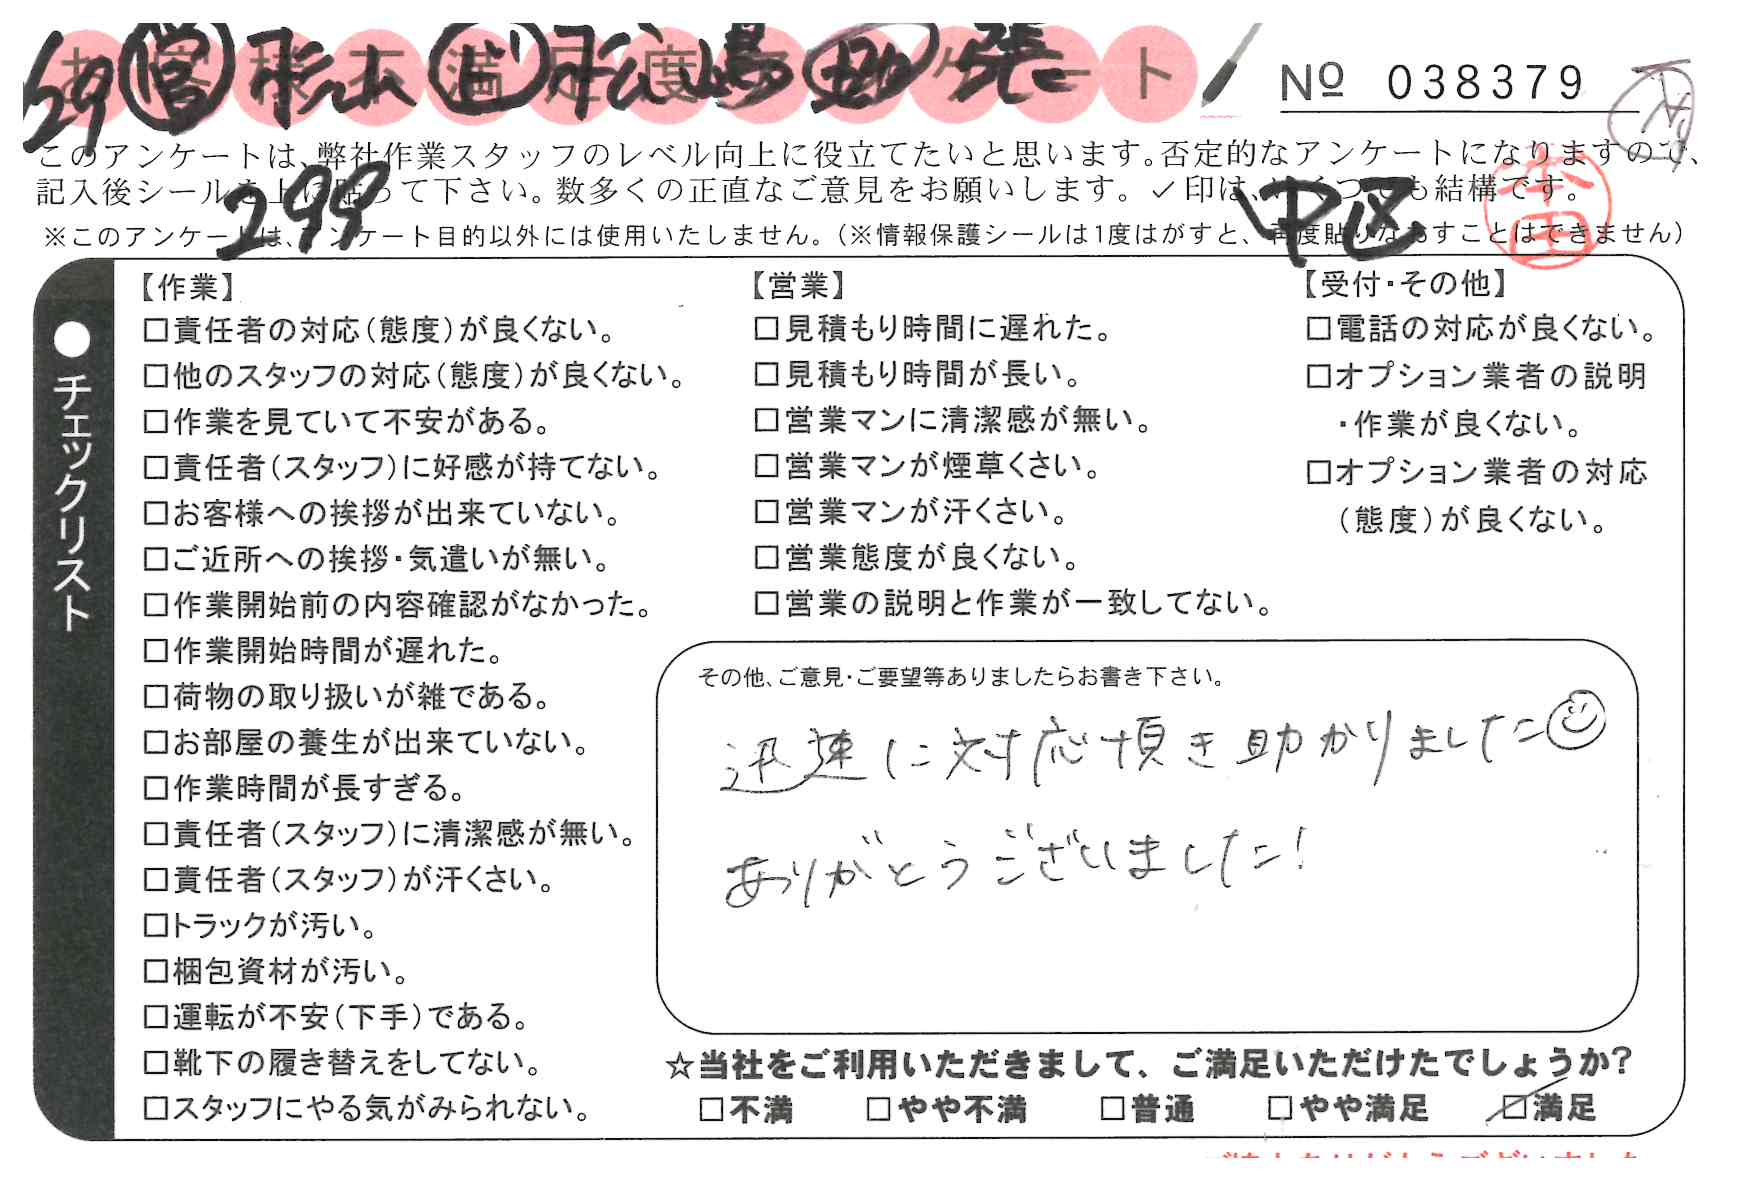 お客様不満足度アンケート
29 営 杉山 ド 松嶋 助 張
№ 038379
このアンケートは、弊社作業スタッフのレベル向上に役立てたいと思います。否定的なアンケートになりますので、
記入後シールを上に貼って下さい。数多くの正直なご意見をお願いします。✓印は、いくつでも結構です。
299 中区
本田
※このアンケートは、アンケート目的以外には使用いたしません。(※情報保護シールは1度はがすと、再度貼りなおすことはできません)
●チェックリスト
【作業】
□責任者の対応(態度)が良くない。
□他のスタッフの対応(態度)が良くない。
□作業を見ていて不安がある。
□責任者(スタッフ)に好感が持てない。
□お客様への挨拶が出来ていない。
□ご近所への挨拶・気遣いが無い。
□作業開始前の内容確認がなかった。
□作業開始時間が遅れた。
□荷物の取り扱いが雑である。
□お部屋の養生が出来ていない。
□作業時間が長すぎる。
□責任者(スタッフ)に清潔感が無い。
□責任者(スタッフ)が汗くさい。
□トラックが汚い。
□梱包資材が汚い。
□運転が不安(下手)である。
□靴下の履き替えをしてない。
□スタッフにやる気がみられない。
【営業】
□見積もり時間に遅れた。
□見積もり時間が長い。
□営業マンに清潔感が無い。
□営業マンが煙草くさい。
□営業マンが汗くさい。
□営業態度が良くない。
□営業の説明と作業が一致してない。
【受付・その他】
□電話の対応が良くない。
□オプション業者の説明
・作業が良くない。
□オプション業者の対応
(態度)が良くない。
その他、ご意見・ご要望等ありましたらお書き下さい。
迅速に対応頂き助かりました
ありがとうございました!
☆当社をご利用いただきまして、ご満足いただけたでしょうか?
□不満 □やや不満 □普通 □やや満足 ☑満足